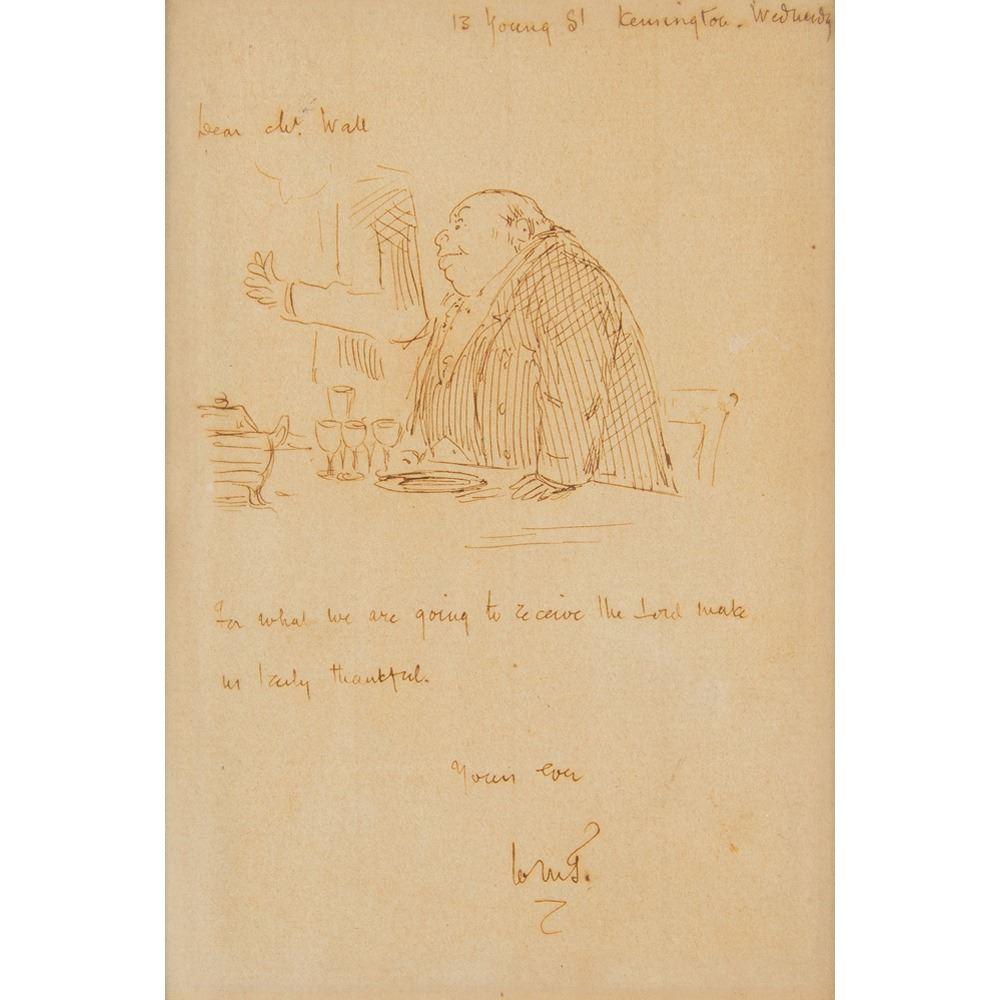 13 Young St Kensington. Wednesdy
Dear Mr. Wall
For what we are going to receive the Lord make
us truly thankful.
Yours ever
WMT.